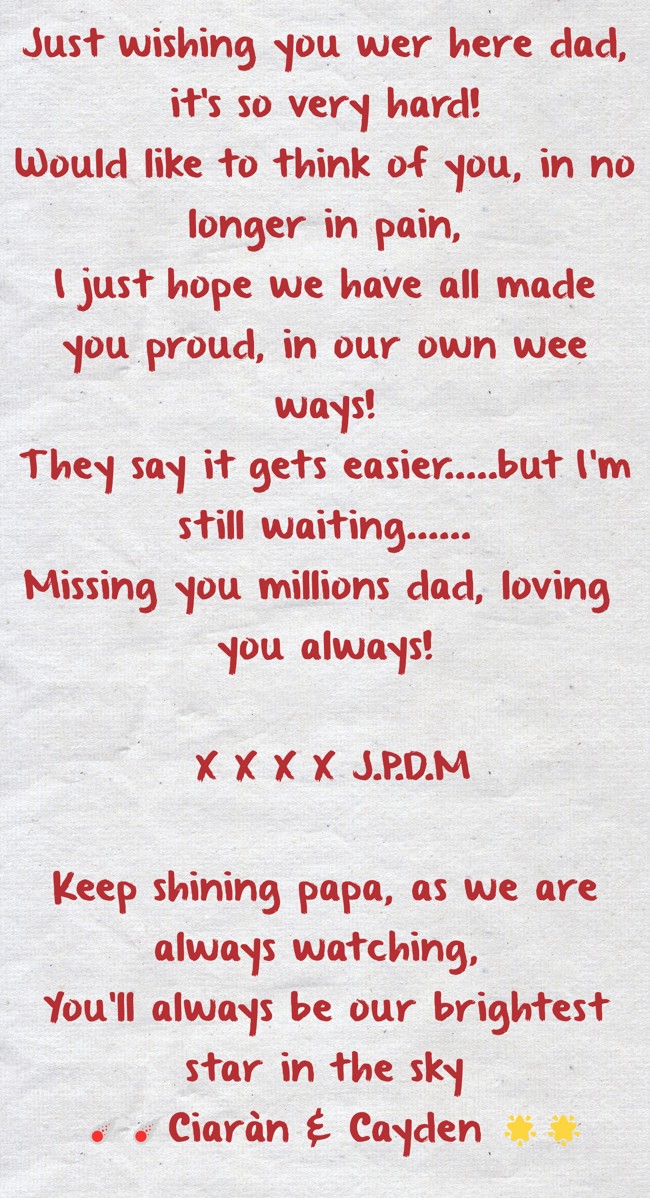 Just wishing you wer here dad,
it's so very hard!
Would like to think of you, in no
longer in pain,
I just hope we have all made
you proud, in our own wee
ways!
They say it gets easier.....but I'm
still waiting......
Missing you millions dad, loving
you always!
X X X X J.P.D.M
Keep shining papa, as we are
always watching,
You'll always be our brightest
star in the sky
☄️☄️Ciaràn & Cayden 🌟🌟